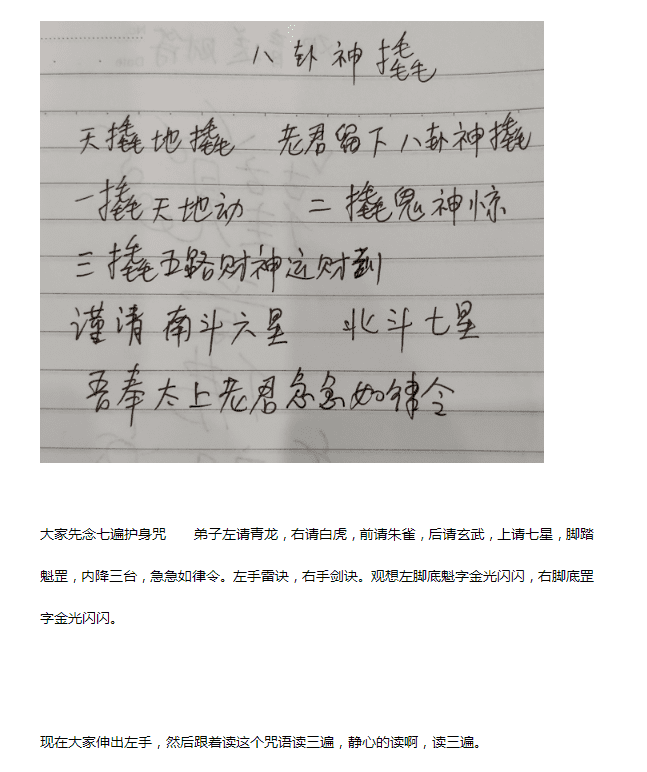 八卦神撬
天撬地撬 老君留下八卦神撬
一撬天地动 二撬鬼神惊
三撬五路财神运财到
谨请南斗六星 北斗七星
吾奉太上老君急急如律令
大家先念七遍护身咒 弟子左请青龙，右请白虎，前请朱雀，后请玄武，上请七星，脚踏
魁罡，内降三台，急急如律令。左手雷诀，右手剑诀。观想左脚底魁字金光闪闪，右脚底罡
字金光闪闪。
现在大家伸出左手，然后跟着读这个咒语读三遍，静心的读啊，读三遍。